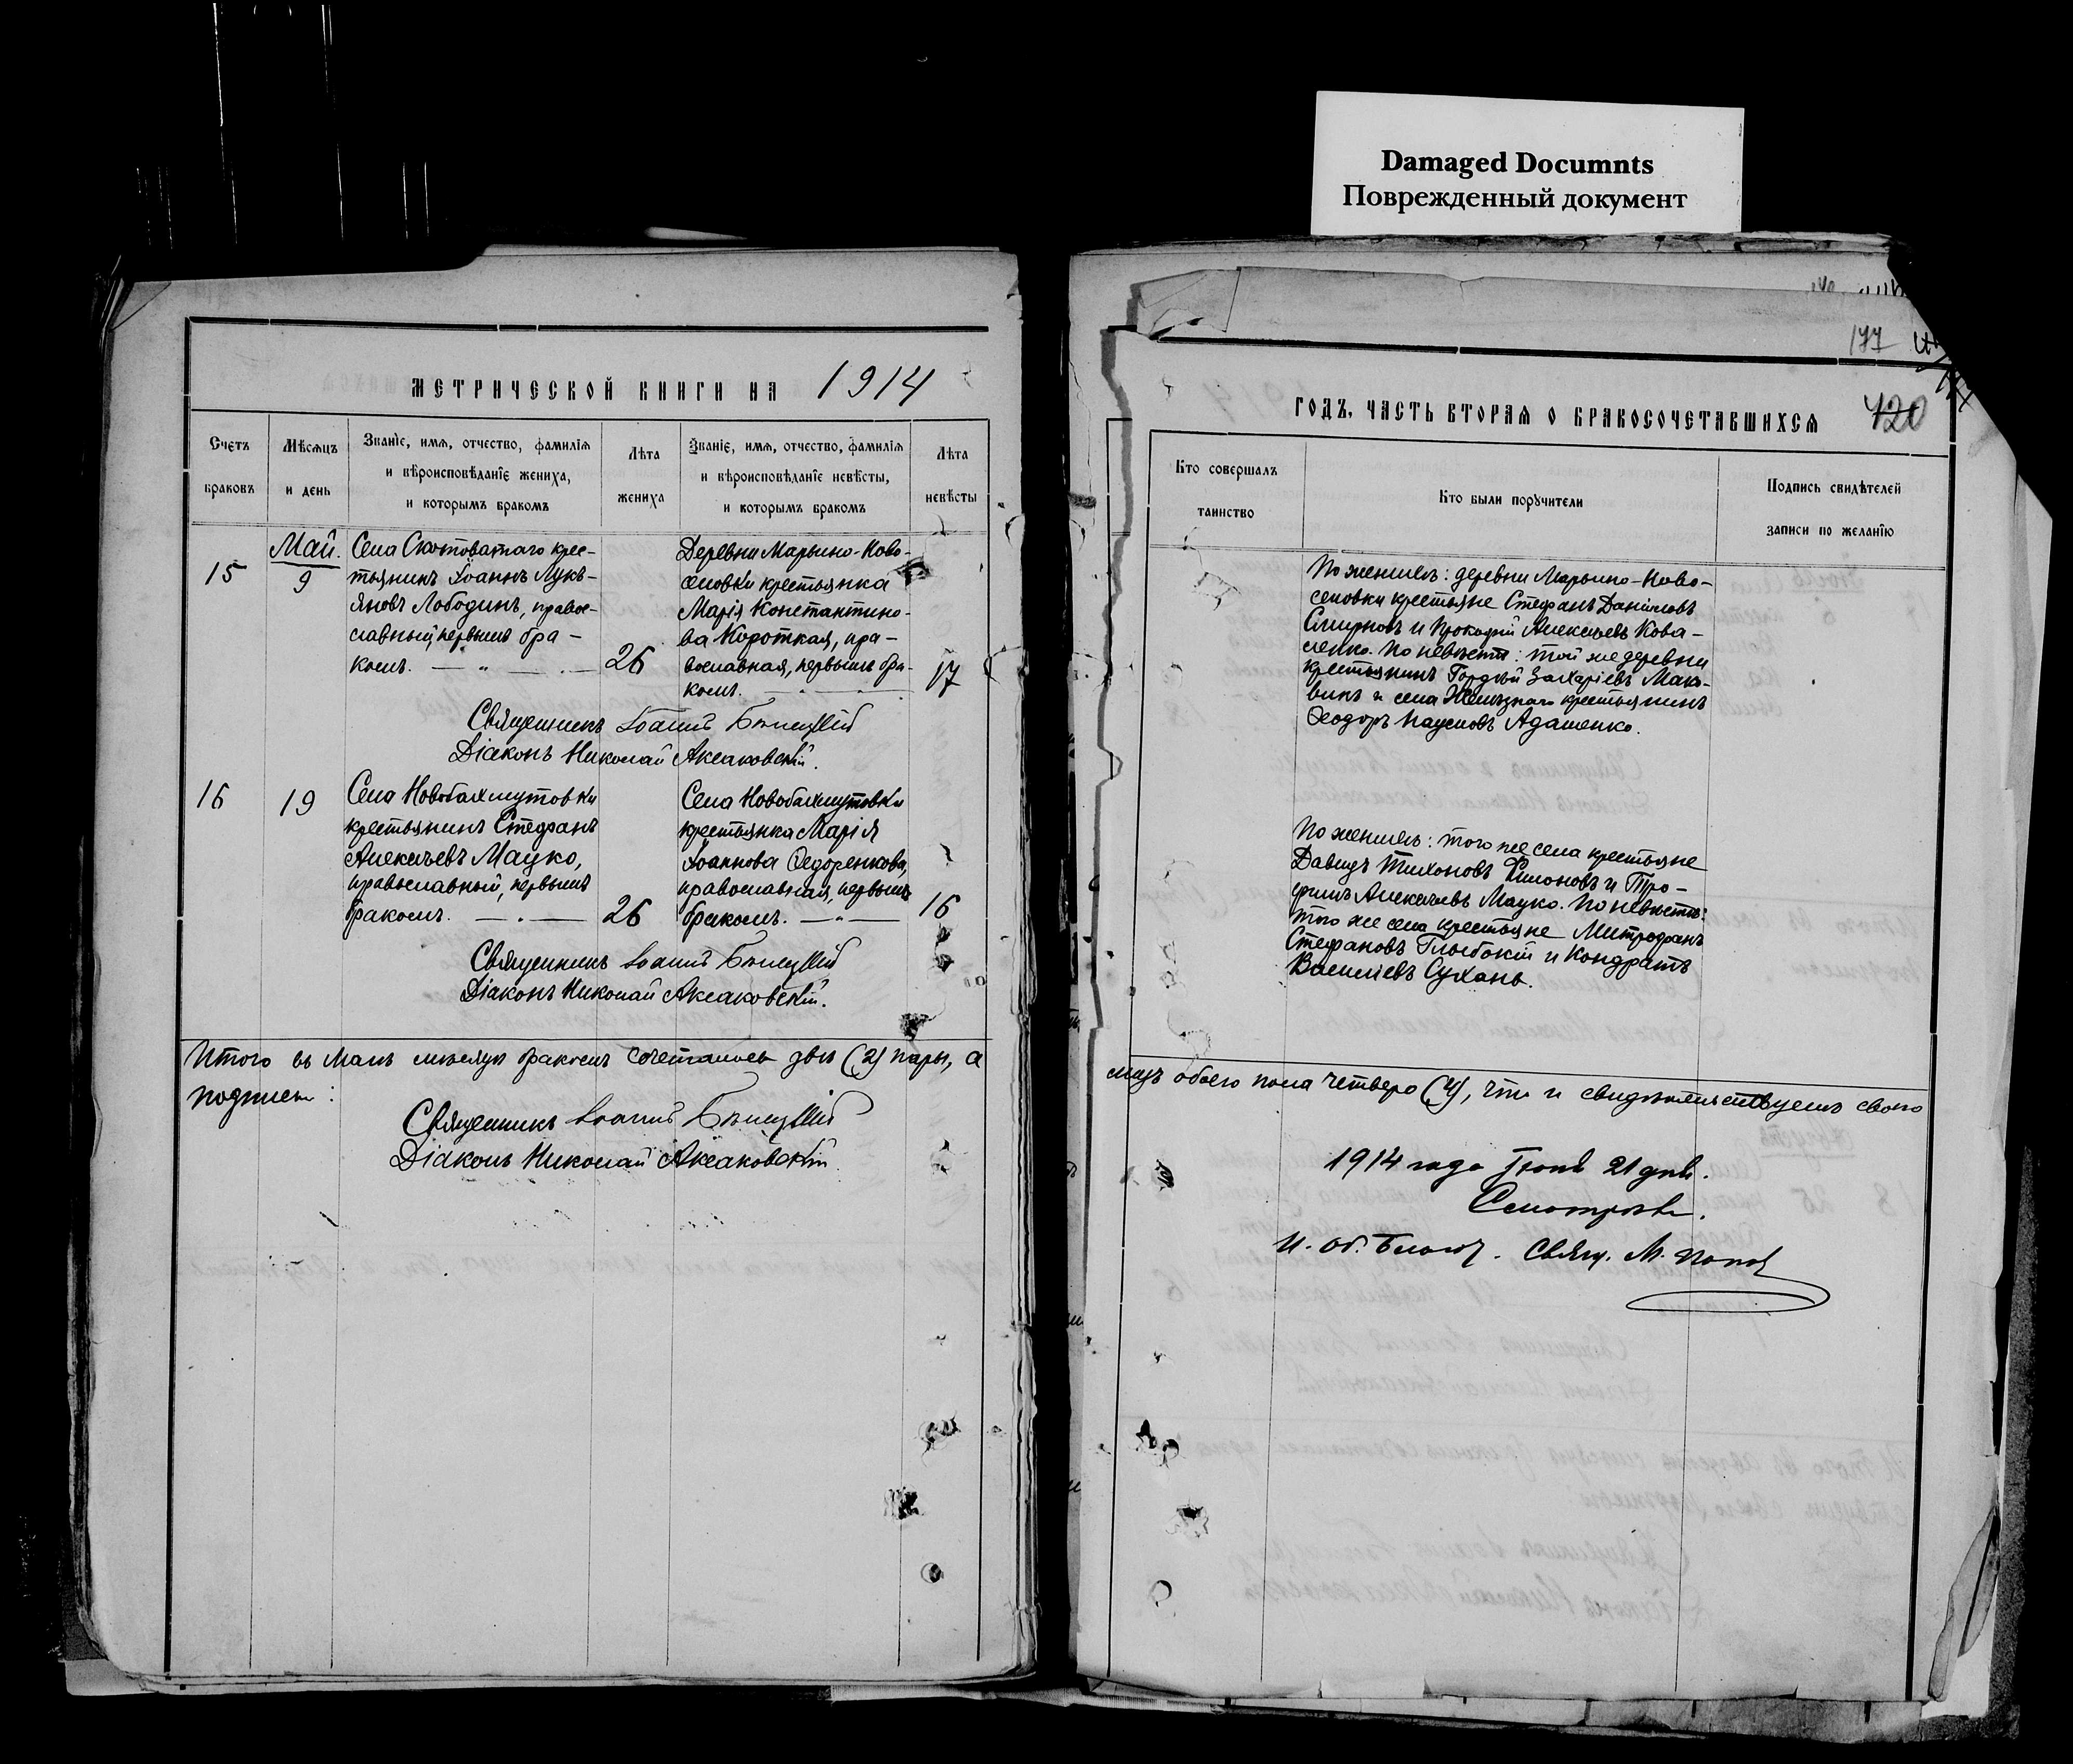 Damaged Documnts
Поврежденный документ
177
МЕТРИЧЕСКОЙ КНИГИ НА 1914
ГОДЪ, ЧАСТЬ ВТОРАЯ О БРАКОСОЧЕТАВШИХСЯ 120
Счетъ
браковъ
Мѣсяцъ
и день
Званіе, имя, отчество, фамилія
и вѣроисповѣданіе жениха,
и которымъ бракомъ
Лѣта
жениха
Званіе, имя, отчество, фамилія
и вѣроисповѣданіе невѣсты,
и которымъ бракомъ
Лѣта
невѣсты
Кто совершалъ
таинство
Кто были поручители
Подпись свидѣтелей
записи по желанію
15
Май.
9
Села Скотоватаго крес-
тьянинъ Іоаннъ Лукь-
яновъ Лободинъ, право-
славный, первымъ бра-
комъ. — " —
26
Деревни Марьино-Ново-
селовки крестьянка
Марія Константино-
ва Короткая, пра-
вославная, первымъ бра-
комъ.
17
Священникъ Іоаннъ
Діаконъ Николай Аксаковскій.
По женихѣ: деревни Марьино-Ново-
селовки крестьяне Стефанъ Даніиловъ
Смирновъ и Прокофій Алексѣевъ Кова-
ленко. По невѣстѣ: той же деревни
крестьянинъ Гордѣй Захаріевъ Мако-
винъ и села Желѣзнаго крестьянинъ
Ѳеодоръ Наумовъ Адаменко.
16
19
Села Новобахмутовки
крестьянинъ Стефанъ
Алексѣевъ Мацко,
православный, первымъ
бракомъ. — " —
26
Села Новобахмутовки
крестьянка Марія
Іоаннова Ѳедоренкова,
православная, первымъ
бракомъ. — " —
16
Священникъ Іоаннъ
Діаконъ Николай Аксаковскій.
По женихѣ: того же села крестьяне
Давидъ Тихоновъ Лимоновъ и Тро-
фимъ Алексѣевъ Мацко. По невѣстѣ:
того же села крестьяне Митрофанъ
Стефановъ Глыбокій и Кондратъ
Василіевъ Сухань.
Итого въ Маѣ мѣсяцѣ бракомъ сочеталось двѣ (2) пары, а
лицъ обоего пола четверо (4), что и свидѣтельствуемъ своею
подписью:
Священникъ Іоаннъ
Діаконъ Николай Аксаковскій
1914 года Іюня 21 дня.
Смотрѣлъ.
И. об. Благоч. Свящ. М. Попов